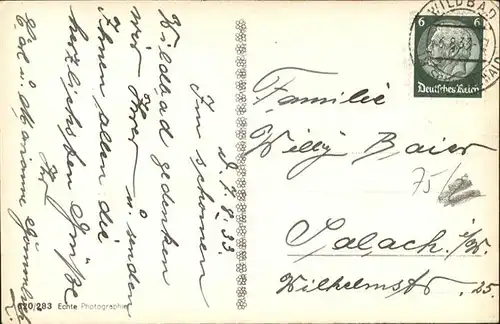 D. 7.8.33.
Im schönen
Wildbad gedenken
wir Ihrer u. senden
Ihnen allen die
herzlichsten Grüße
Ihr
Ed. u. Marianne
620/283 Echte Photographie
WILDBAD
6 6
Deutsches Reich
Familie
Willy Baier
75/
Salach i/W.
Wilhelmstr. 25